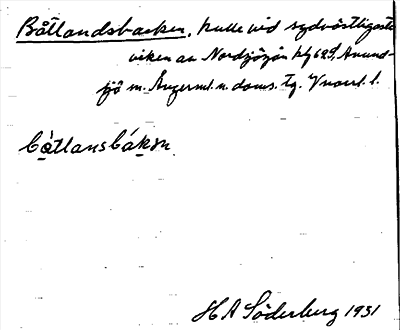 Båtlandsbacken, kulle vid sydvästligaste
viken av Nordsjösjön hfg 629, Anund-
sjö sn. Ångerml. n. doms. tg. Vnorrl. l.
bàtlansbákən
H A Söderberg 1931